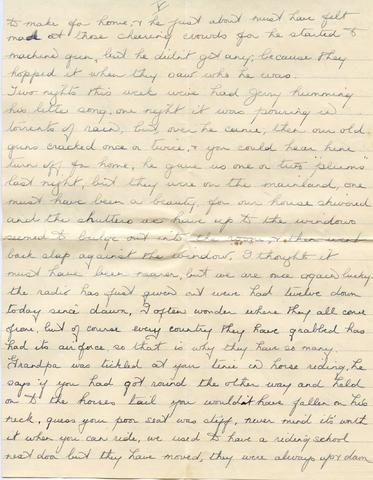 V
to make for home, & he just about must have felt
mad at those cheering crowds for he started to
machine gun, but he didn't get any, because they
hopped it when they saw who he was.
Two nights this week weve had Jerry humming
his little song, one night it was pouring in
torrents of rain, but over he came, then our old
guns cracked once or twice, & you could hear him
turn off for home, he gave us one or two "plums"
last night, but they were on the mainland, one
must have been a beauty, for our house shivered
and the shutters we have up to the windows
seemed to bulge out into the room, & then went
back slap against the window. I thought it
must have been nearer, but we are once again lucky.
the radio has just given out weve had twelve down
today since dawn, I often wonder where they all come
from, but of course every country they have grabbed has
had its airforce, so that is why they have so many
Grandpa was tickled at your time in horse riding, he
says if you had got round the other way and held
on to the horses tail you wouldnt have fallen on his
neck, guess your poor seat was stiff, never mind it's worth
it when you can ride, we used to have a riding school
next door but they have moved, they were always up & down